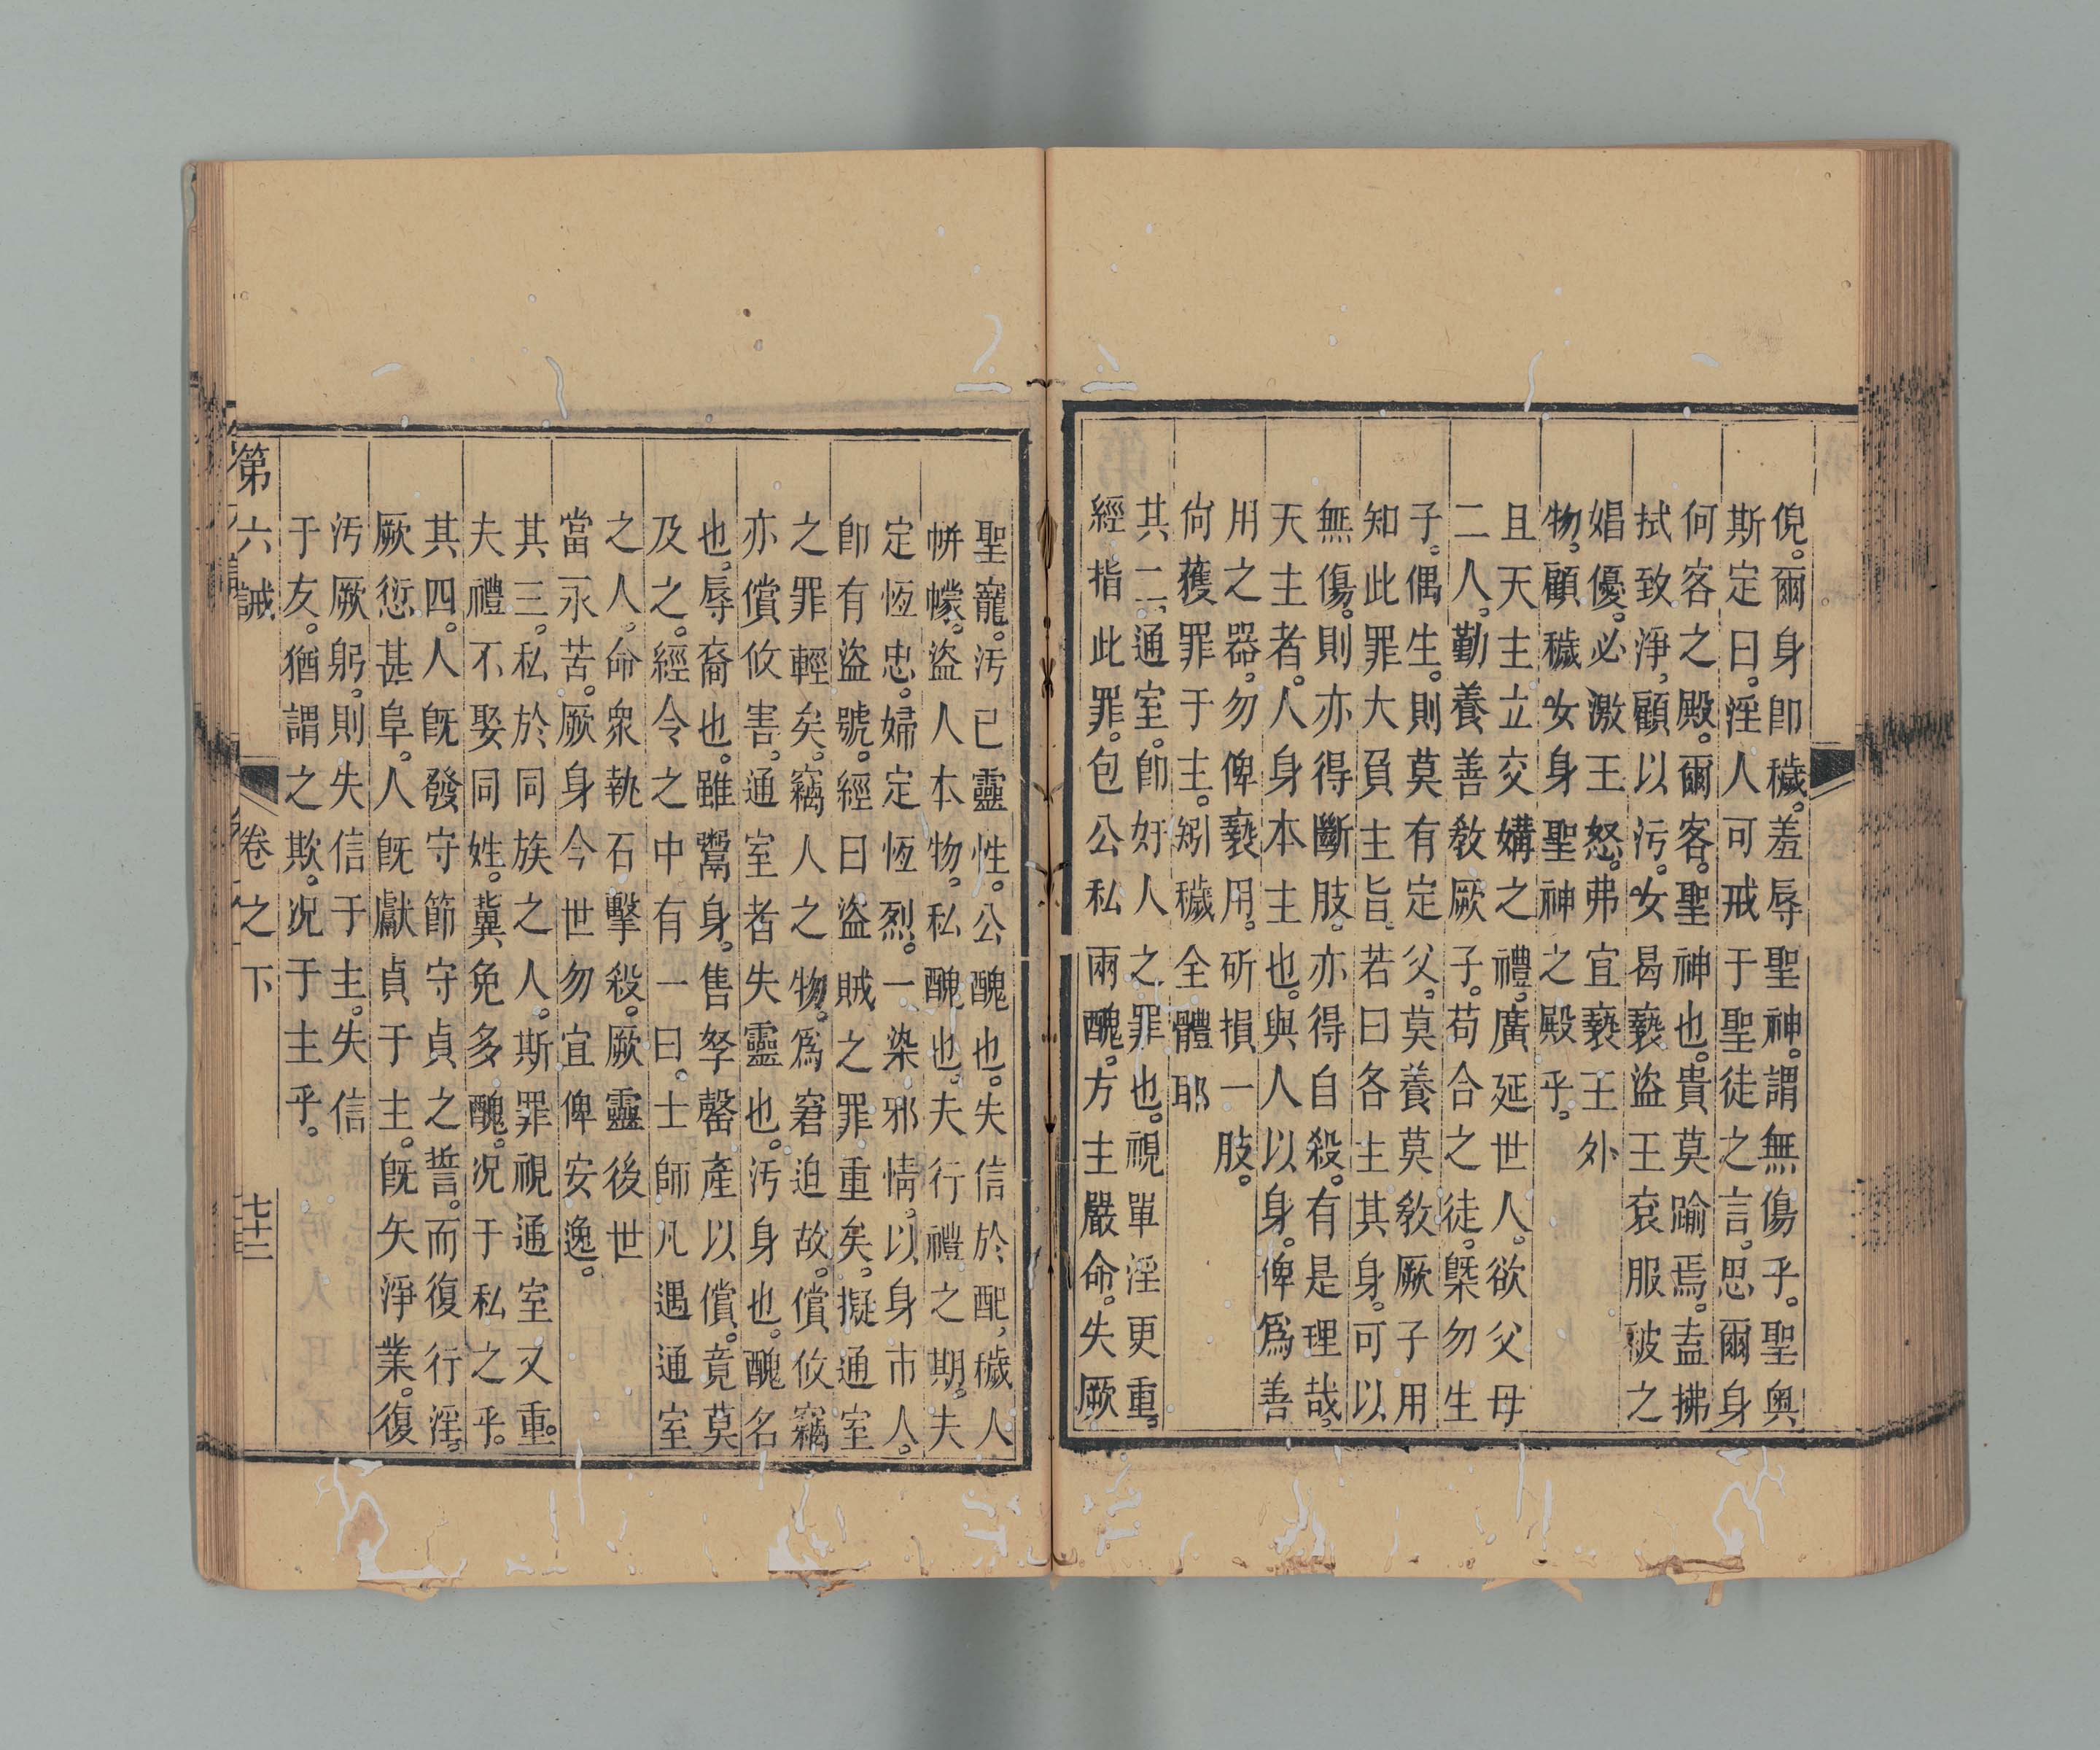 倪。爾身卽穢。羞辱聖神。謂無傷乎。聖奧
斯定曰。淫人可戒于聖徒之言。思爾身
何客之殿。爾客。聖神也。貴莫踰焉。盍拂
拭致淨。顧以污。女曷褻盜王袞服被之
娼優。必激王怒。弗宜褻王外
物。顧穢女身聖神之殿乎。
且天主立交媾之禮。廣延世人。欲父母
二人。勤養善敎厥子。苟合之徒。槩勿生
子。偶生。則莫有定父。莫養莫敎厥子用
知此罪大負主旨。若曰各主其身。可以
無傷。則亦得斷肢。亦得自殺。有是理哉。
天主者。人身本主也。與人以身。俾爲善
用之器。勿俾褻用。斫損一肢。
尙獲罪于主。矧穢全體耶
其二。通室。卽奸人之罪也。視單淫更重。
經指此罪。包公私兩醜。方主嚴命。失厥
聖寵。污已靈性。公醜也。失信於配。穢人
帡幪。盜人本物。私醜也。夫行禮之期。夫
定恆忠。婦定恆烈。一染邪情。以身市人。
卽有盜號。經曰盜賊之罪重矣。擬通室
之罪輕矣。竊人之物。爲窘迫故。償攸竊
亦償攸害。通室者失靈也。污身也。醜名
也。辱裔也。雖鬻身。售孥罄產以償。竟莫
及之。經令之中有一曰。士師凡遇通室
之人。命衆執石擊殺。厥靈後世
當永苦。厥身今世勿宜俾安逸。
其三。私於同族之人。斯罪視通室又重。
夫禮不娶同姓。冀免多醜。況于私之乎。
其四。人旣發守節守貞之誓。而復行淫。
厥愆甚阜。人旣獻貞于主。旣矢淨業。復
污厥躬。則失信于主。失信
于友。猶謂之欺。況于主乎。
第六誡 卷之下 七十二